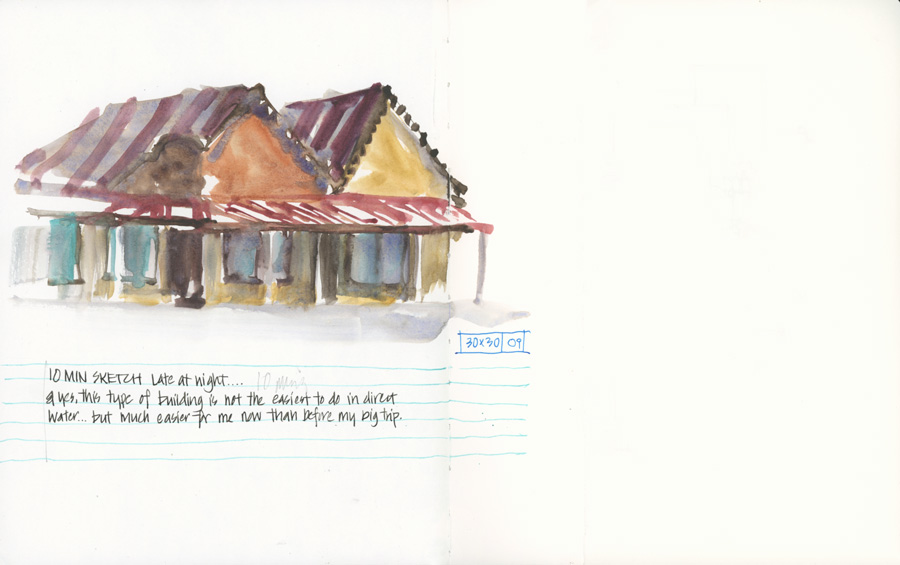 30x30 09
10 MIN SKETCH Late at night.... 10 mins
& yes, this type of building is not the easiest to do in direct
water... but much easier for me now than before my big trip.